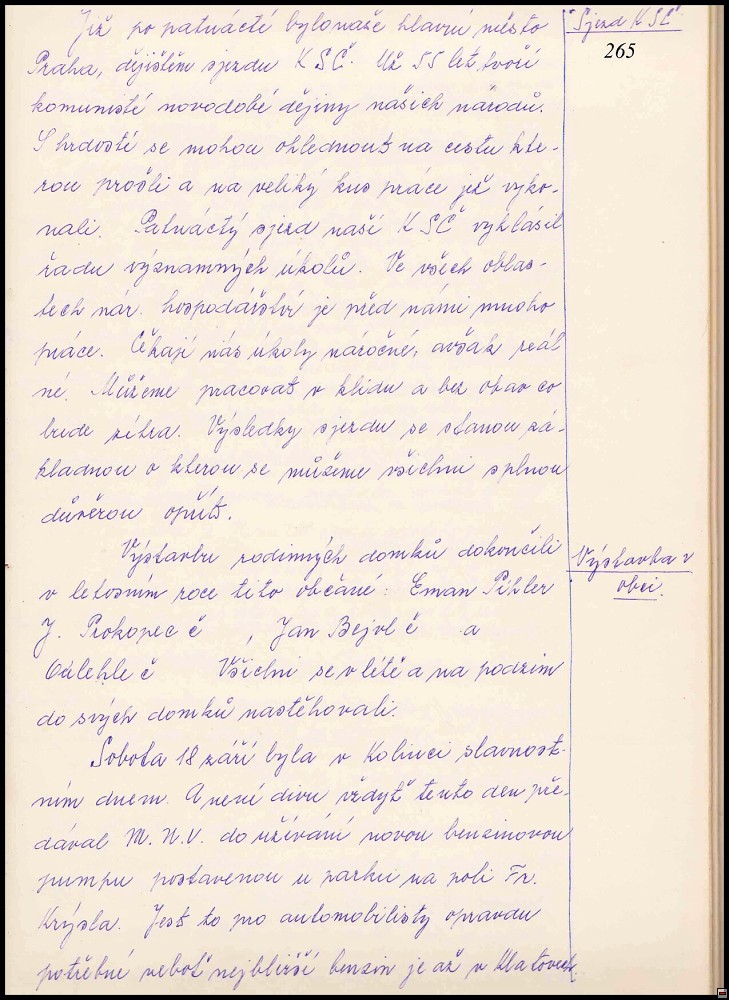 Již po patnácté bylo naše hlavní město
"Sjezd KSČ"
265
Praha, dějištěm sjezdu KSČ. Už 55 let tvoří
komunisté novodobé dějiny našich národů.
S hrdostí se mohou ohlednout na cestu kte-
rou prošli a na veliký kus práce již vyko-
nali. Patnáctý sjezd naší KSČ vyhlásil
řadu významných úkolů. Ve všech oblas-
tech nár. hospodářství je před námi mnoho
práce. Čekají nás úkoly náročné, avšak reál
né. Můžeme pracovat v klidu a bez obav co
bude zítra. Výsledky sjezdu se stanou zá-
kladnou o kterou se můžeme všichni s plnou
důvěrou opřít.
Výstavbu rodinných domků dokončili
Výstavba v
obci.
v letošním roce tito občané: Eman Pihler
J. Prokopec č , Jan Bejvl č a
Odlehle č Všichni se v létě a na podzim
do svých domků nastěhovali.
Sobota 18 září byla v Kolinci slavnost-
ním dnem. A není divu vždyť tento den pře-
dával M.N.V. do užívání novou benzinovou
pumpu postavenou u parku na poli Fr.
Krýsla. Jest to pro automobilisty opravdu
potřebné neboť nejbližší benzin je až v Klatovech.